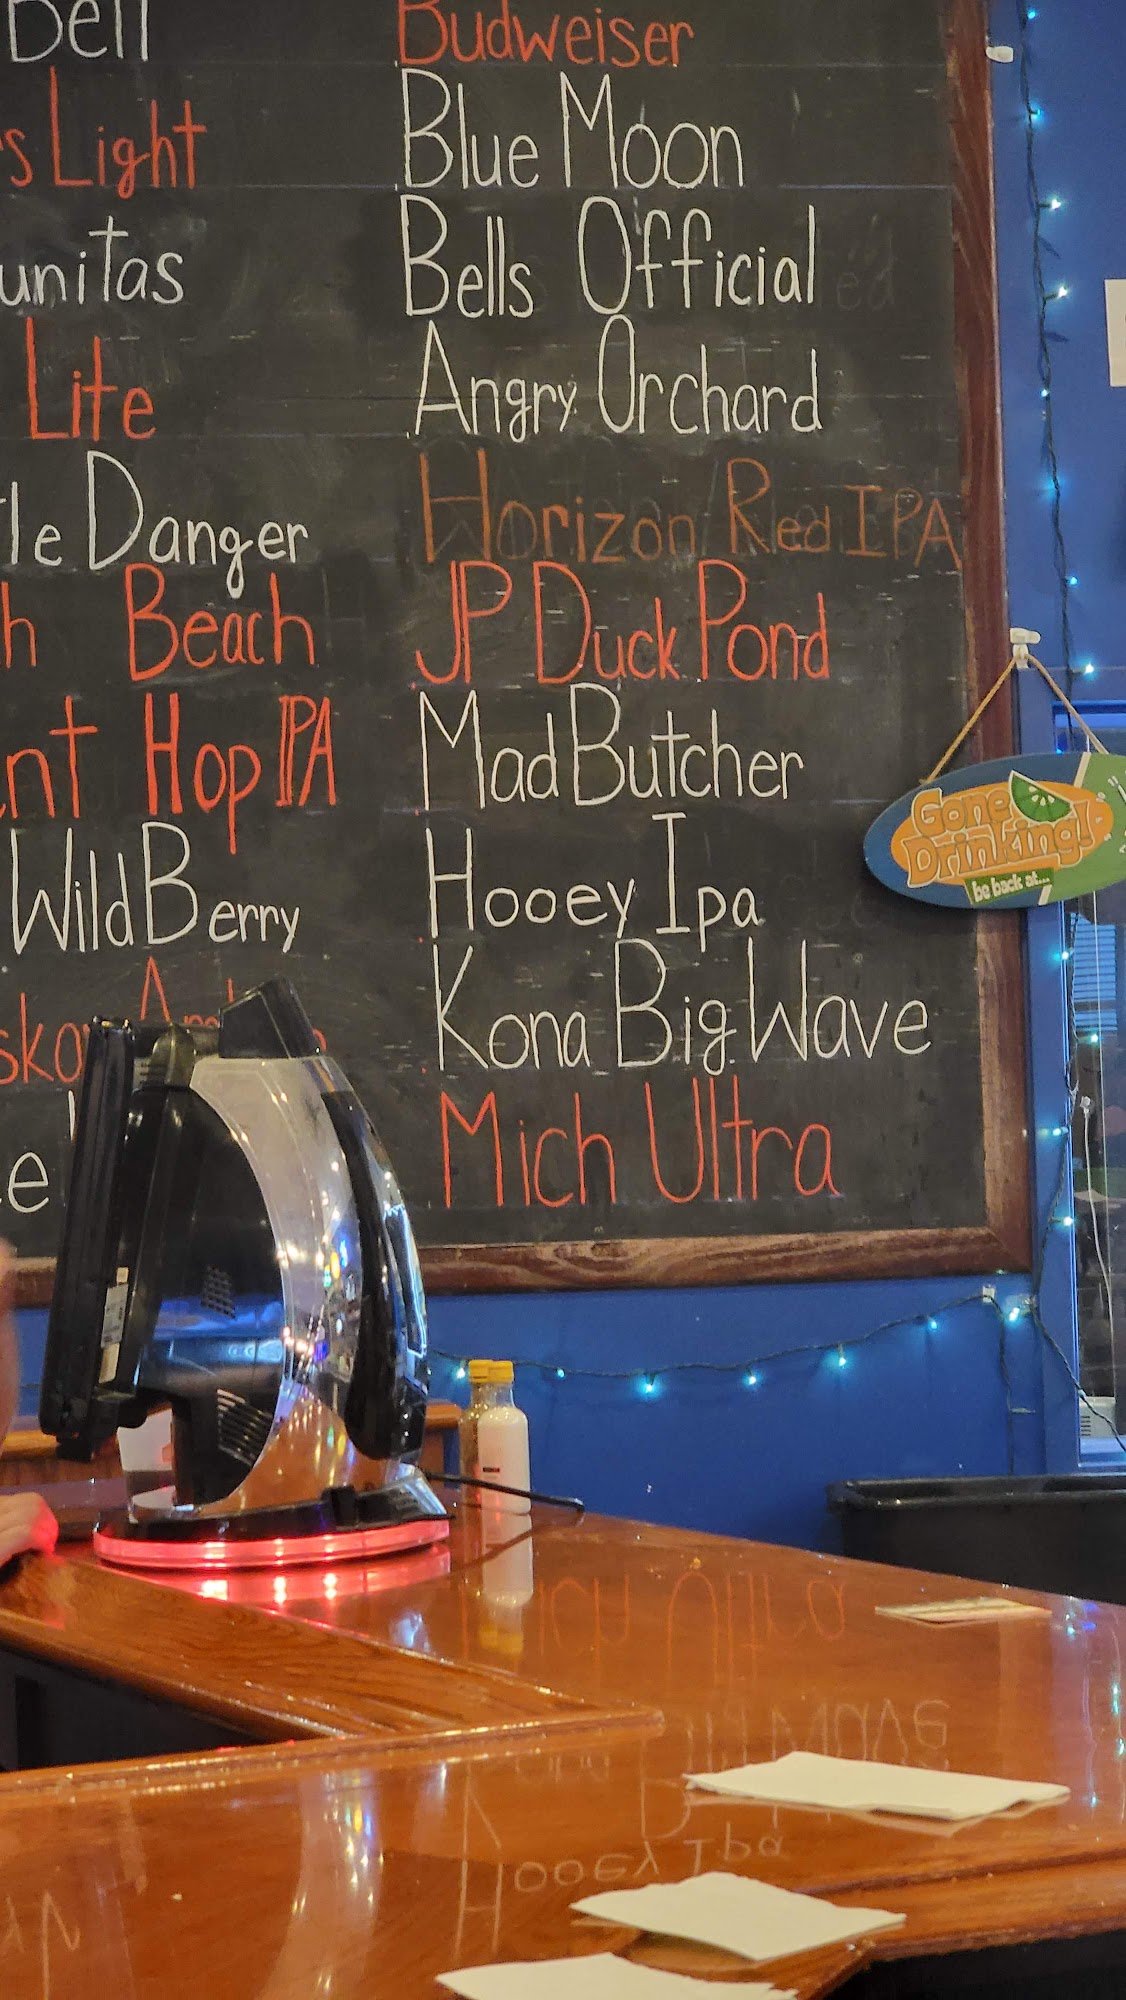 Bell
s Light
unitas
Lite
le Danger
h Beach
nt Hop IPA
Wild Berry
Budweiser
Blue Moon
Bells Official
Angry Orchard
Horizon Red IPA
JP Duck Pond
Mad Butcher
Hooey Ipa
Kona Big Wave
Mich Ultra
Gone
Drinking!
be back at...